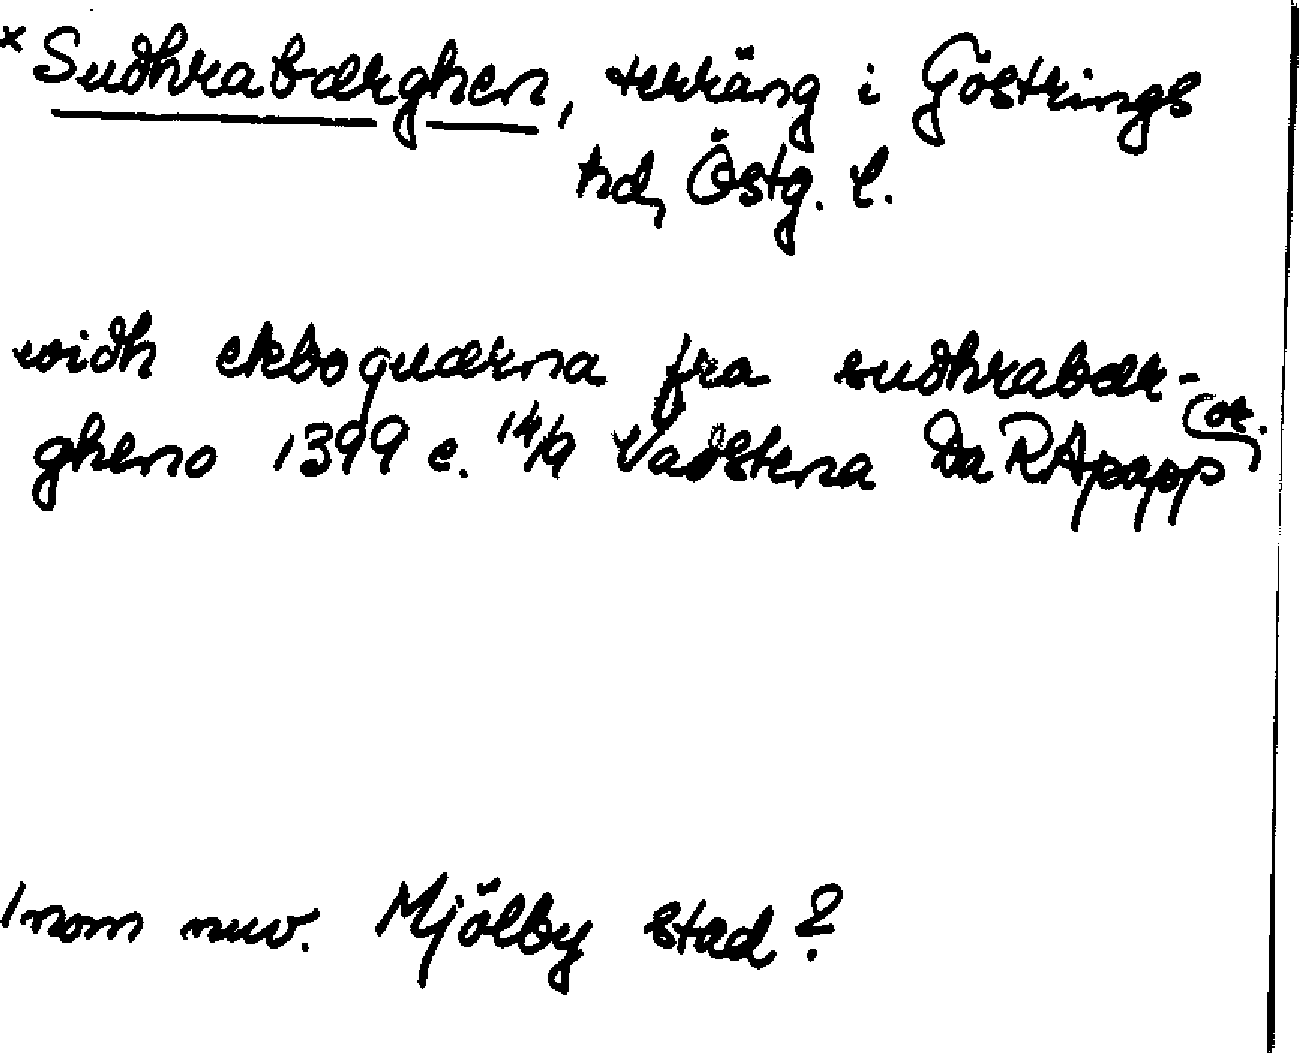 × Sudhrabærghen, terräng i Göstrings
hd, Östg. l.
widh ekboquærna fra sudhrabær-
gheno 1399 c. 14/9 Vadstena Da RApapp or.
Inom nuv. Mjölby stad?